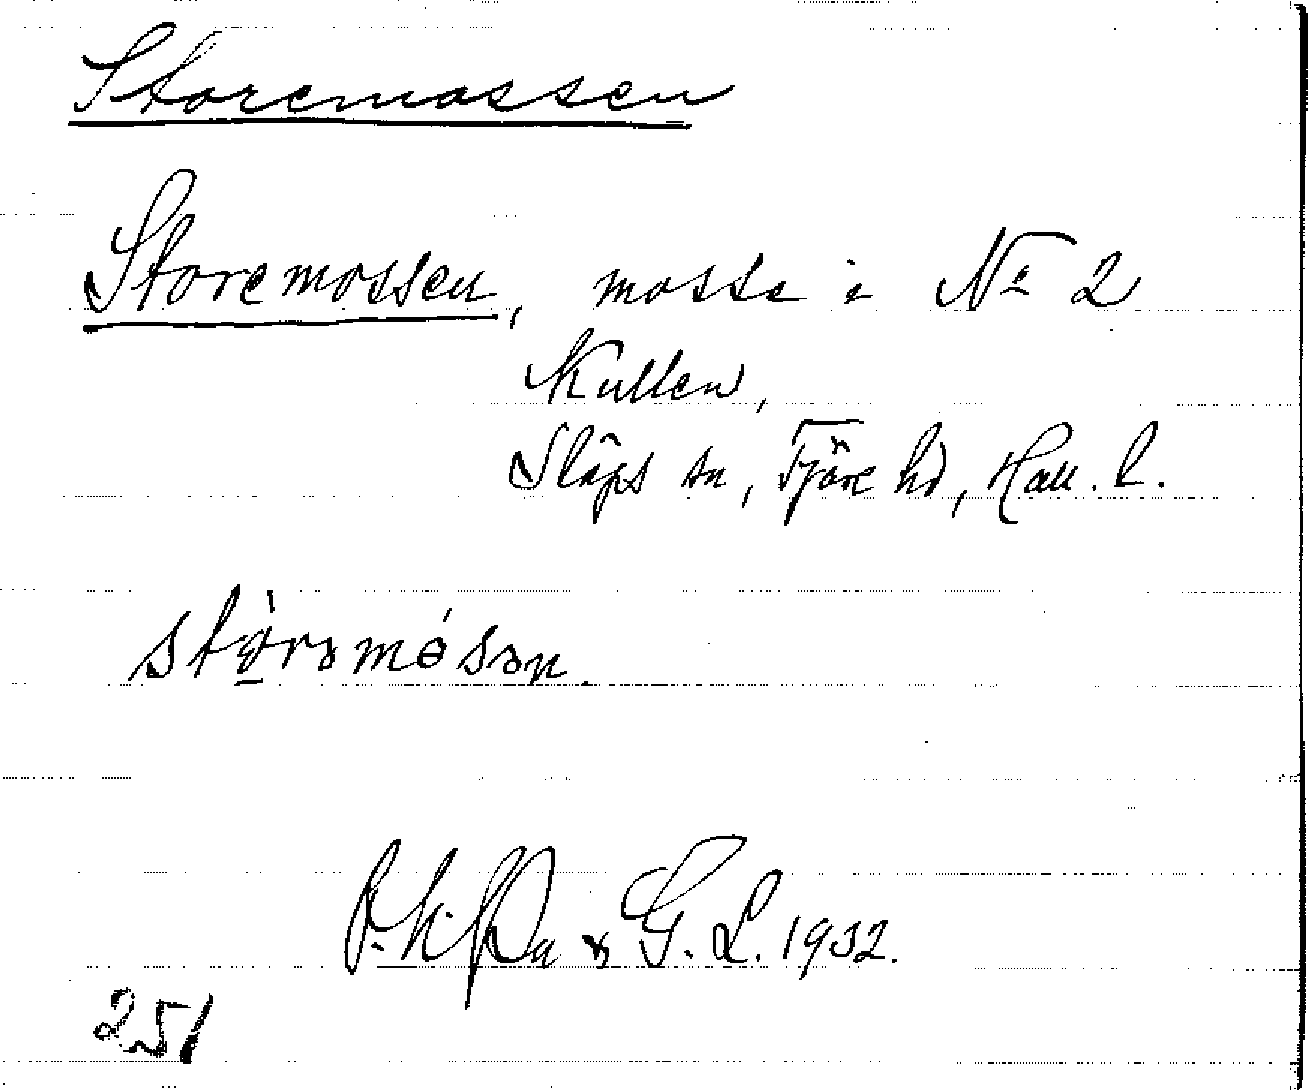 Storemossen
Storemossen, mosse i No 2
Kullen,
Släps sn, Fjäre hd, Hall. l.
G. L. 1932.
251